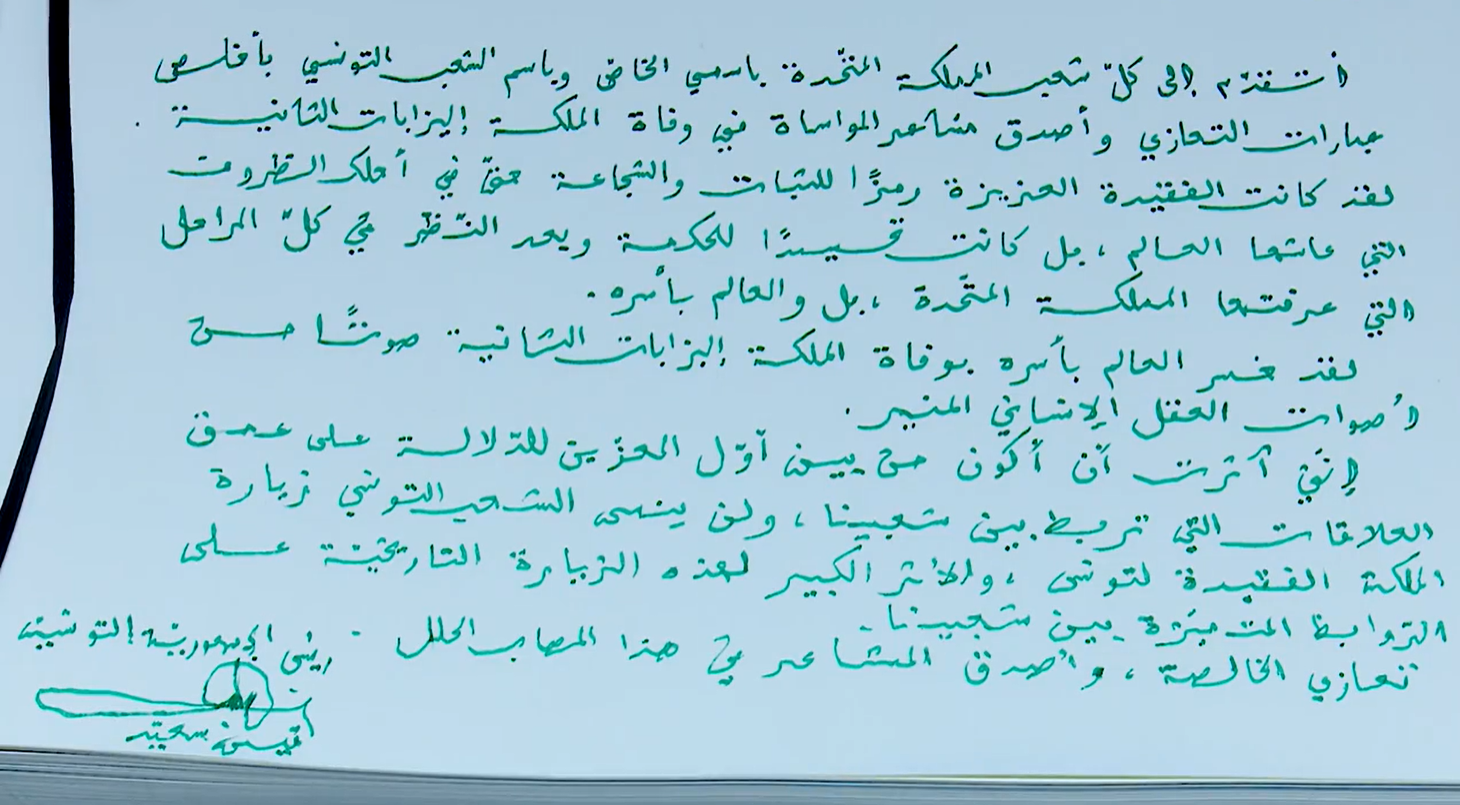 أتقدّم إلى كلّ شعب المملكة المتّحدة باسمي الخاصّ وباسم الشعب التونسي بأخلص
عبارات التعازي وأصدق مشاعر المواساة في وفاة الملكة إليزابات الثانية .
لقد كانت الفقيدة العزيزة رمزًا للثبات والشجاعة حتّى في أحلك الظروف
التي عاشها العالم ، بل كانت تجسيدًا للحكمة وبعد النّظر في كلّ المراحل
التي عرفتها المملكة المتّحدة ، بل والعالم بأسره .
لقد خسر العالم بأسره بوفاة الملكة إليزابات الثانية صوتًا من
أصوات العقل الإنساني المنير .
إنّي آثرت أن أكون من بين أوّل المعزّين للدّلالة على عمق
العلاقات التي تربط بين شعبينا ، ولن ينسى الشعب التونسي زيارة
الملكة الفقيدة لتونس ، والأثر الكبير لهذه الزيارة التاريخيّة على
الروابط المتميّزة بين شعبينا .
تعازي الخالصة ، وأصدق المشاعر في هذا المصاب الجلل .
رئيس الجمهوريّة التونسيّة
قيس سعيّد